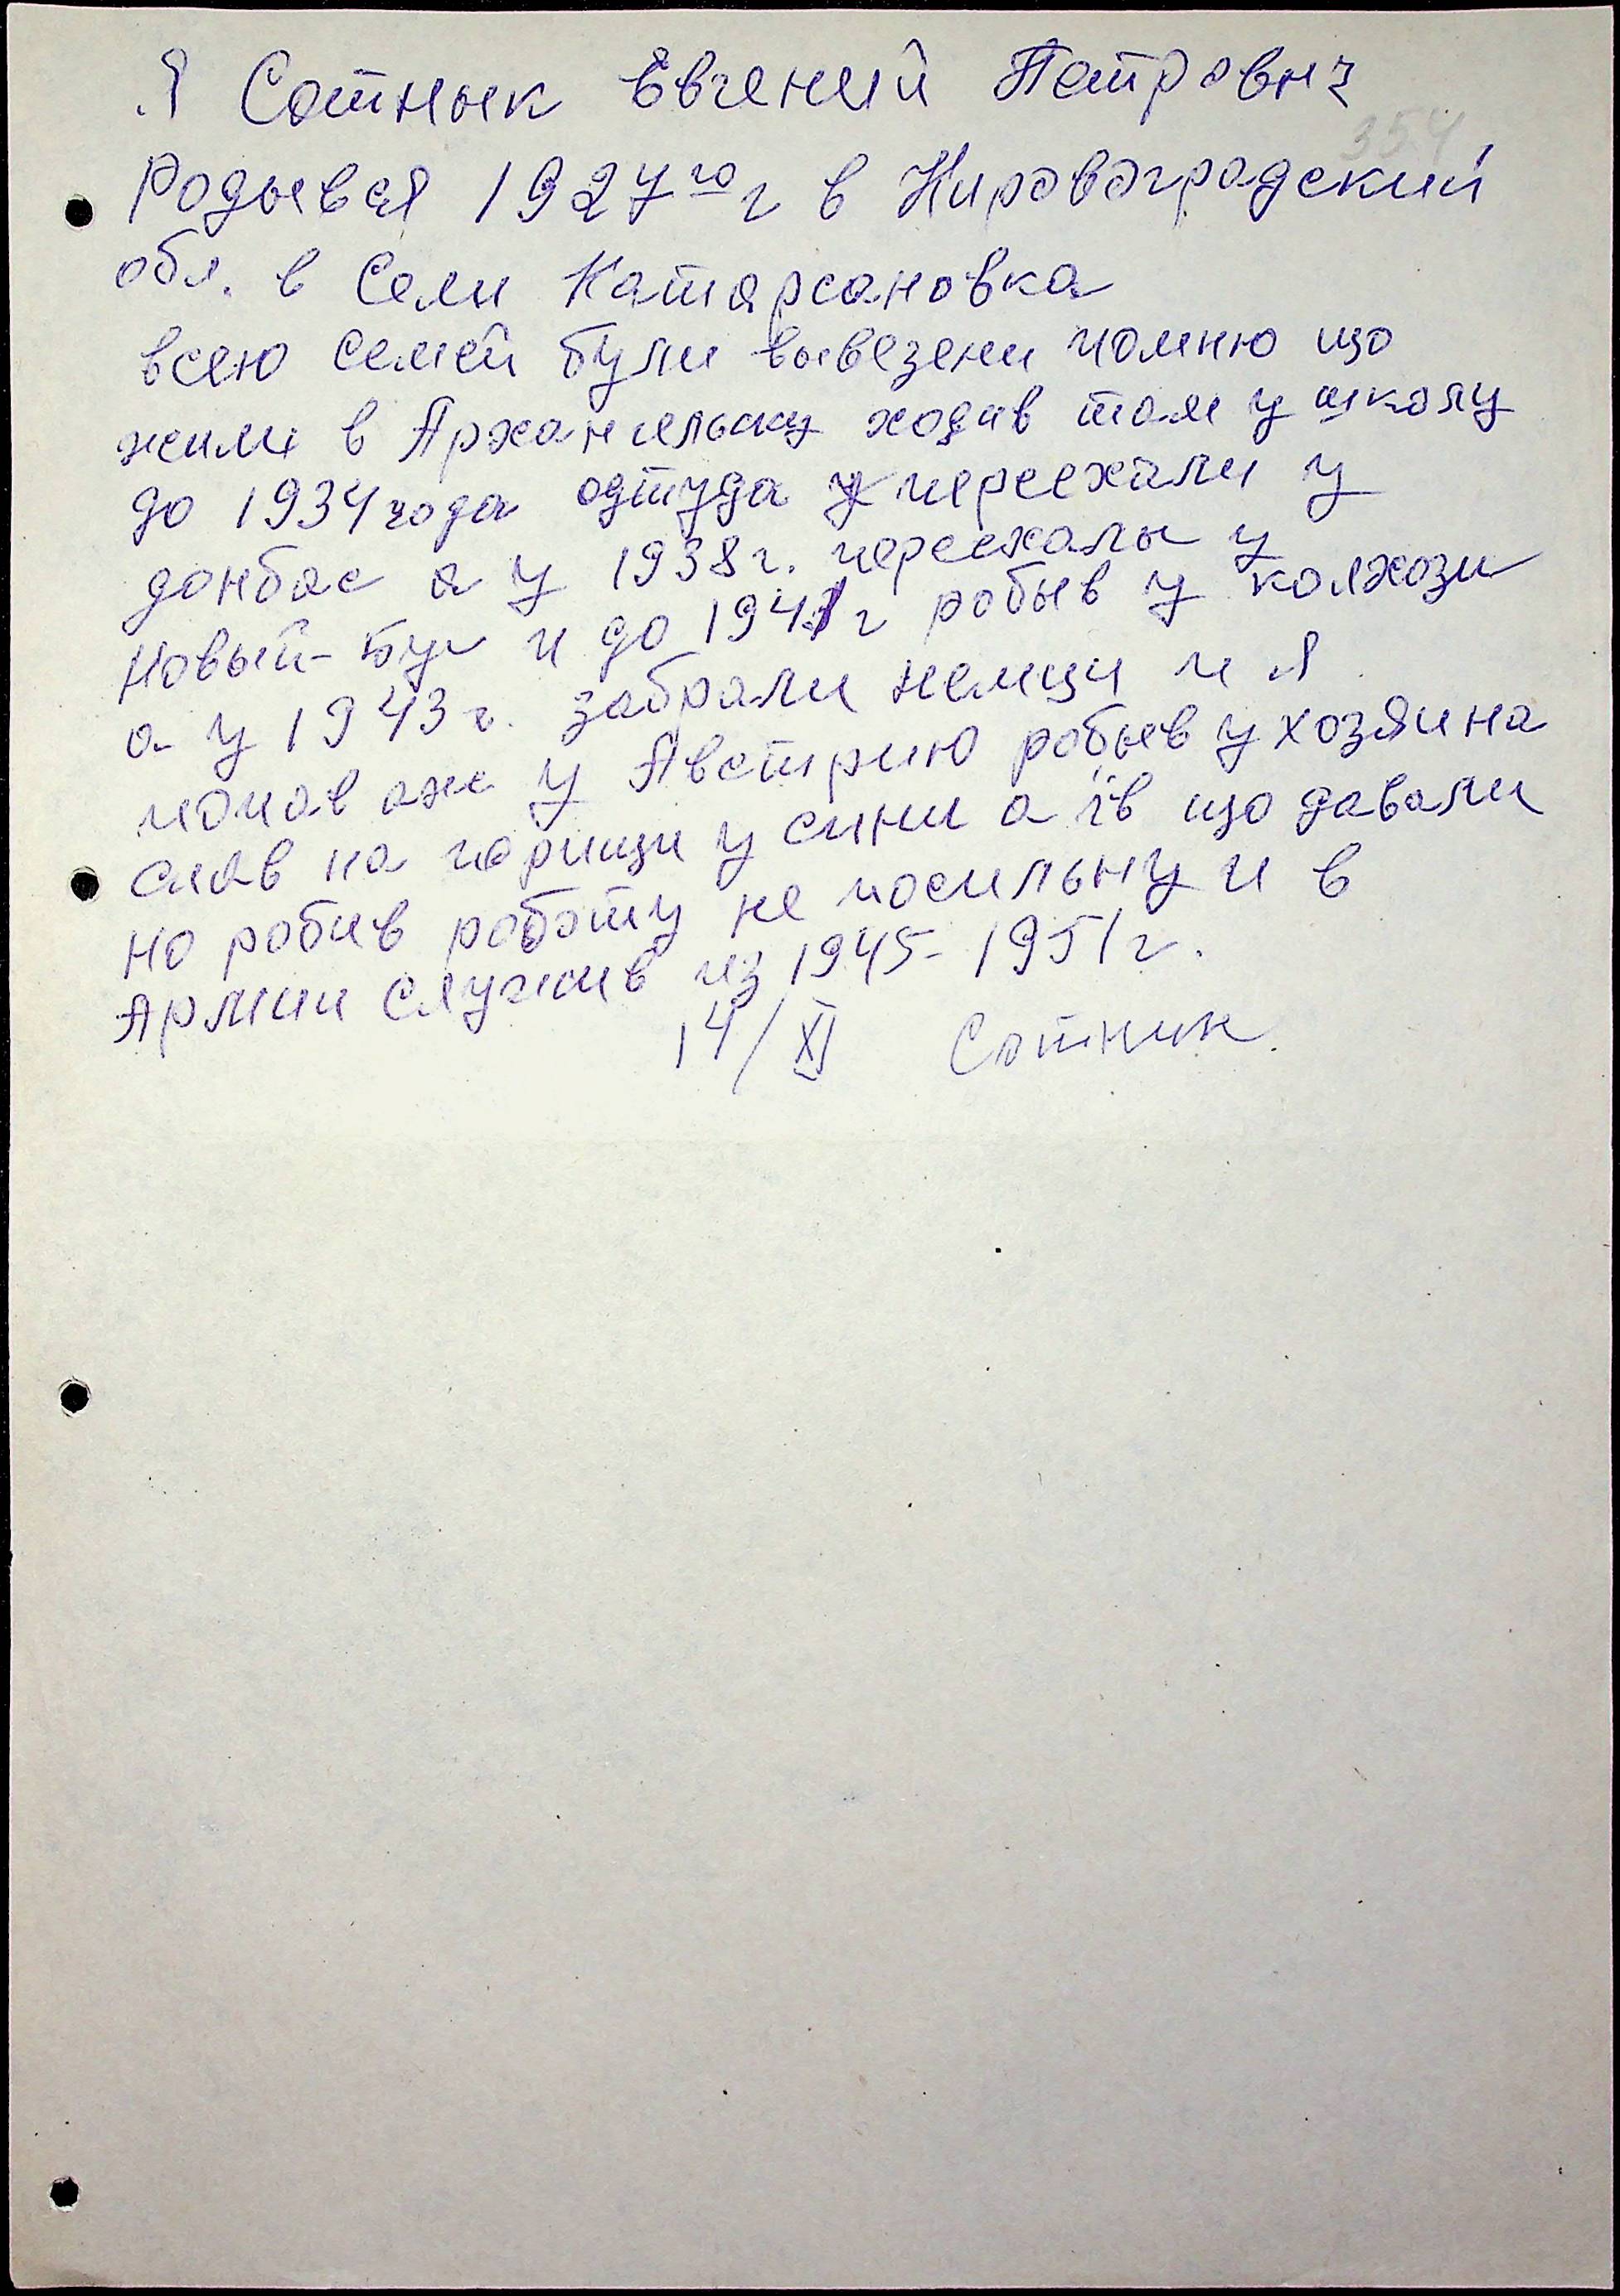 Я Сотнык Евгений Петровыч
354
Родывся 1927го г в Кировоградский
обл. в Сели Катарсановка
всею семей були вывезени помню що
жили в Архангельску ходив там у школу
до 1934 года одтуда переехали у
донбас а у 1938г. переехалы у
Новый-Буг и до 1941 г робыв у колхози
а у 1943 г. забрали немци и я
попав аж у Австрию робыв у хозяина
спав на горищи у сини а їв що давали
но робив работу не посильну и в
Армии служив из 1945-1951г.
14/XI Сотник.